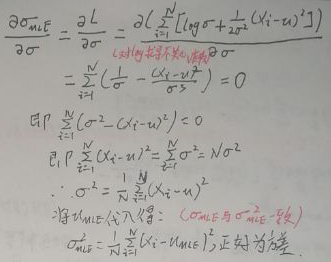 ∂σ_MLE/∂σ = ∂L/∂σ = ∂(∑_{i=1}^{N}[logσ + 1/(2σ²)(x_i-u)²])/∂σ
(对log求导不失
= ∑_{i=1}^{N}(1/σ - (x_i-u)²/σ³) = 0
即 ∑_{i=1}^{N}(σ²-(x_i-u)²) = 0
即 ∑_{i=1}^{N}(x_i-u)² = ∑_{i=1}^{N}σ² = Nσ²
∴ σ² = 1/N ∑_{i=1}^{N}(x_i-u)²
将u_MLE代入得: (σ_MLE与σ²_MLE一致)
σ²_MLE = 1/N ∑_{i=1}^{N}(x_i-u_MLE)², 正好为方差.